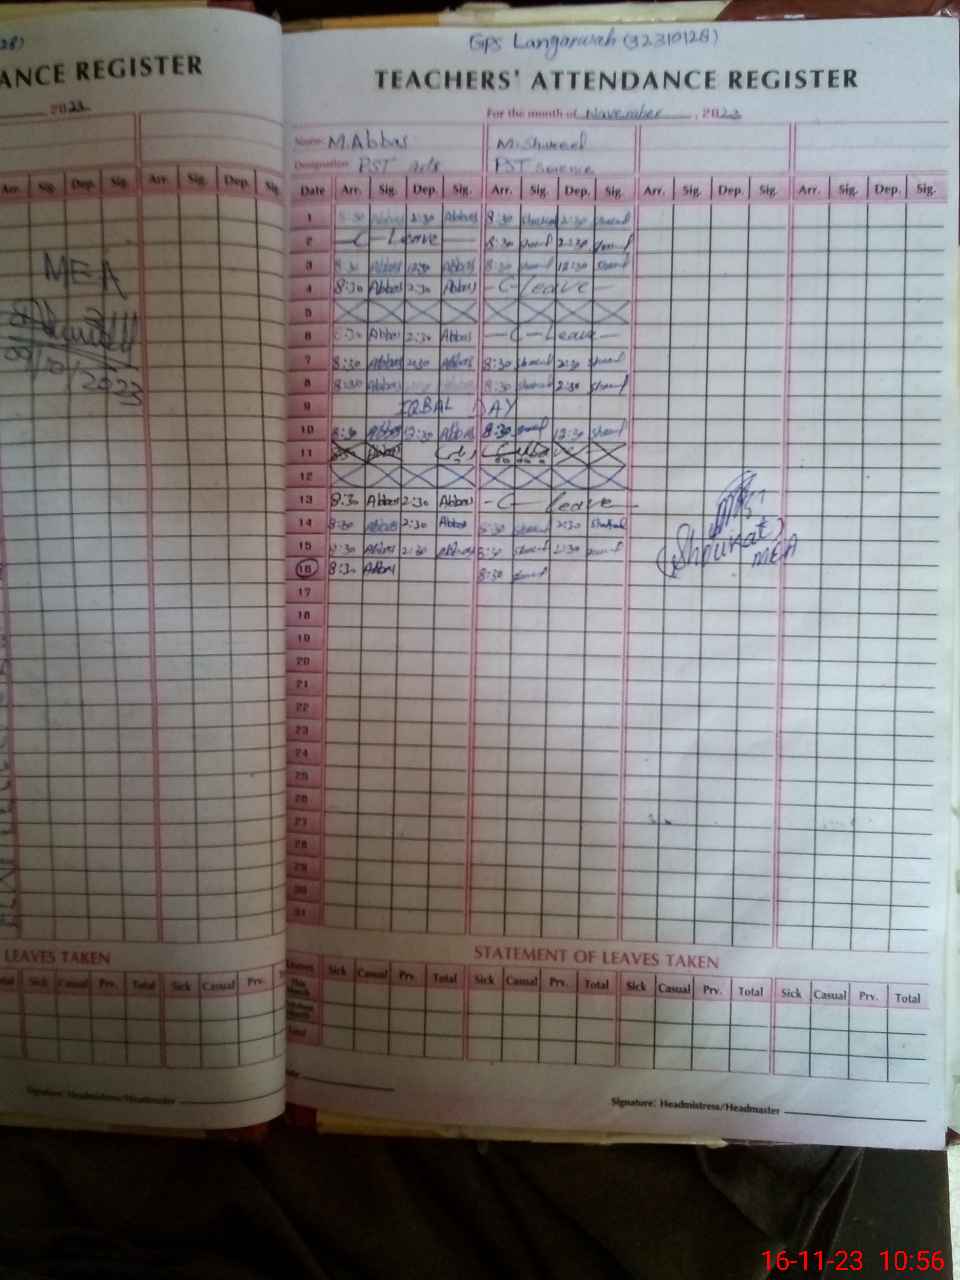 28)
GPS Langarwah (32310128)
ANCE REGISTER
TEACHERS' ATTENDANCE REGISTER
2023
For the month of November, 2023
Name: M.Abbas M.Shakeel
Designation PST Arts PST Science
Arr. Sig. Dep. Sig. Arr. Sig. Dep. Sig.
Date Arr. Sig. Dep. Sig. Arr. Sig. Dep. Sig. Arr. Sig. Dep. Sig. Arr. Sig. Dep. Sig.
1 8:30 Abbas 2:30 Abbas 8:30 Shakeel 2:30 Shakeel
2 C - Leave 8:30 2:30
3 8:30 Abbas 12:30 Abbas 8:30 12:30
4 8:30 Abbas 2:30 Abbas - C - leave -
5
6 8:30 Abbas 2:30 Abbas - C - Leave -
7 8:30 Abbas 2:30 Abbas 8:30 2:30
8 8:30 Abbas 8:30 2:30
9 IQBAL DAY
10 8:30 Abbas 12:30 Abbas 8:30 12:30
11 Abbas
12
13 8:30 Abbas 2:30 Abbas - C - leave -
14 8:30 Abbas 2:30 Abbas 8:30 2:30
15 8:30 Abbas 2:30 Abbas 8:30 2:30
16 8:30 Abbas 8:30
MEA
09/10/2023
(Shoukat)
MEA
17
18
19
20
21
22
23
24
25
26
27
28
29
30
31
LEAVES TAKEN
STATEMENT OF LEAVES TAKEN
Total Sick Casual Prv. Total Sick Casual Prv.
Leaves Sick Casual Prv. Total Sick Casual Prv. Total Sick Casual Prv. Total Sick Casual Prv. Total
This Month
Total
Signature: Headmistress/Headmaster
Signature: Headmistress/Headmaster
16-11-23 10:56